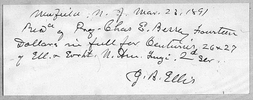 Newfield, N.J. Mar. 23, 1891
Rec'd of Prof. Chas E. Bessey Fourteen
Dollars in full for Centuries, 26 & 27
of Ell. & Everh. N. Am. Fungi, 2nd Ser.
J. B. Ellis